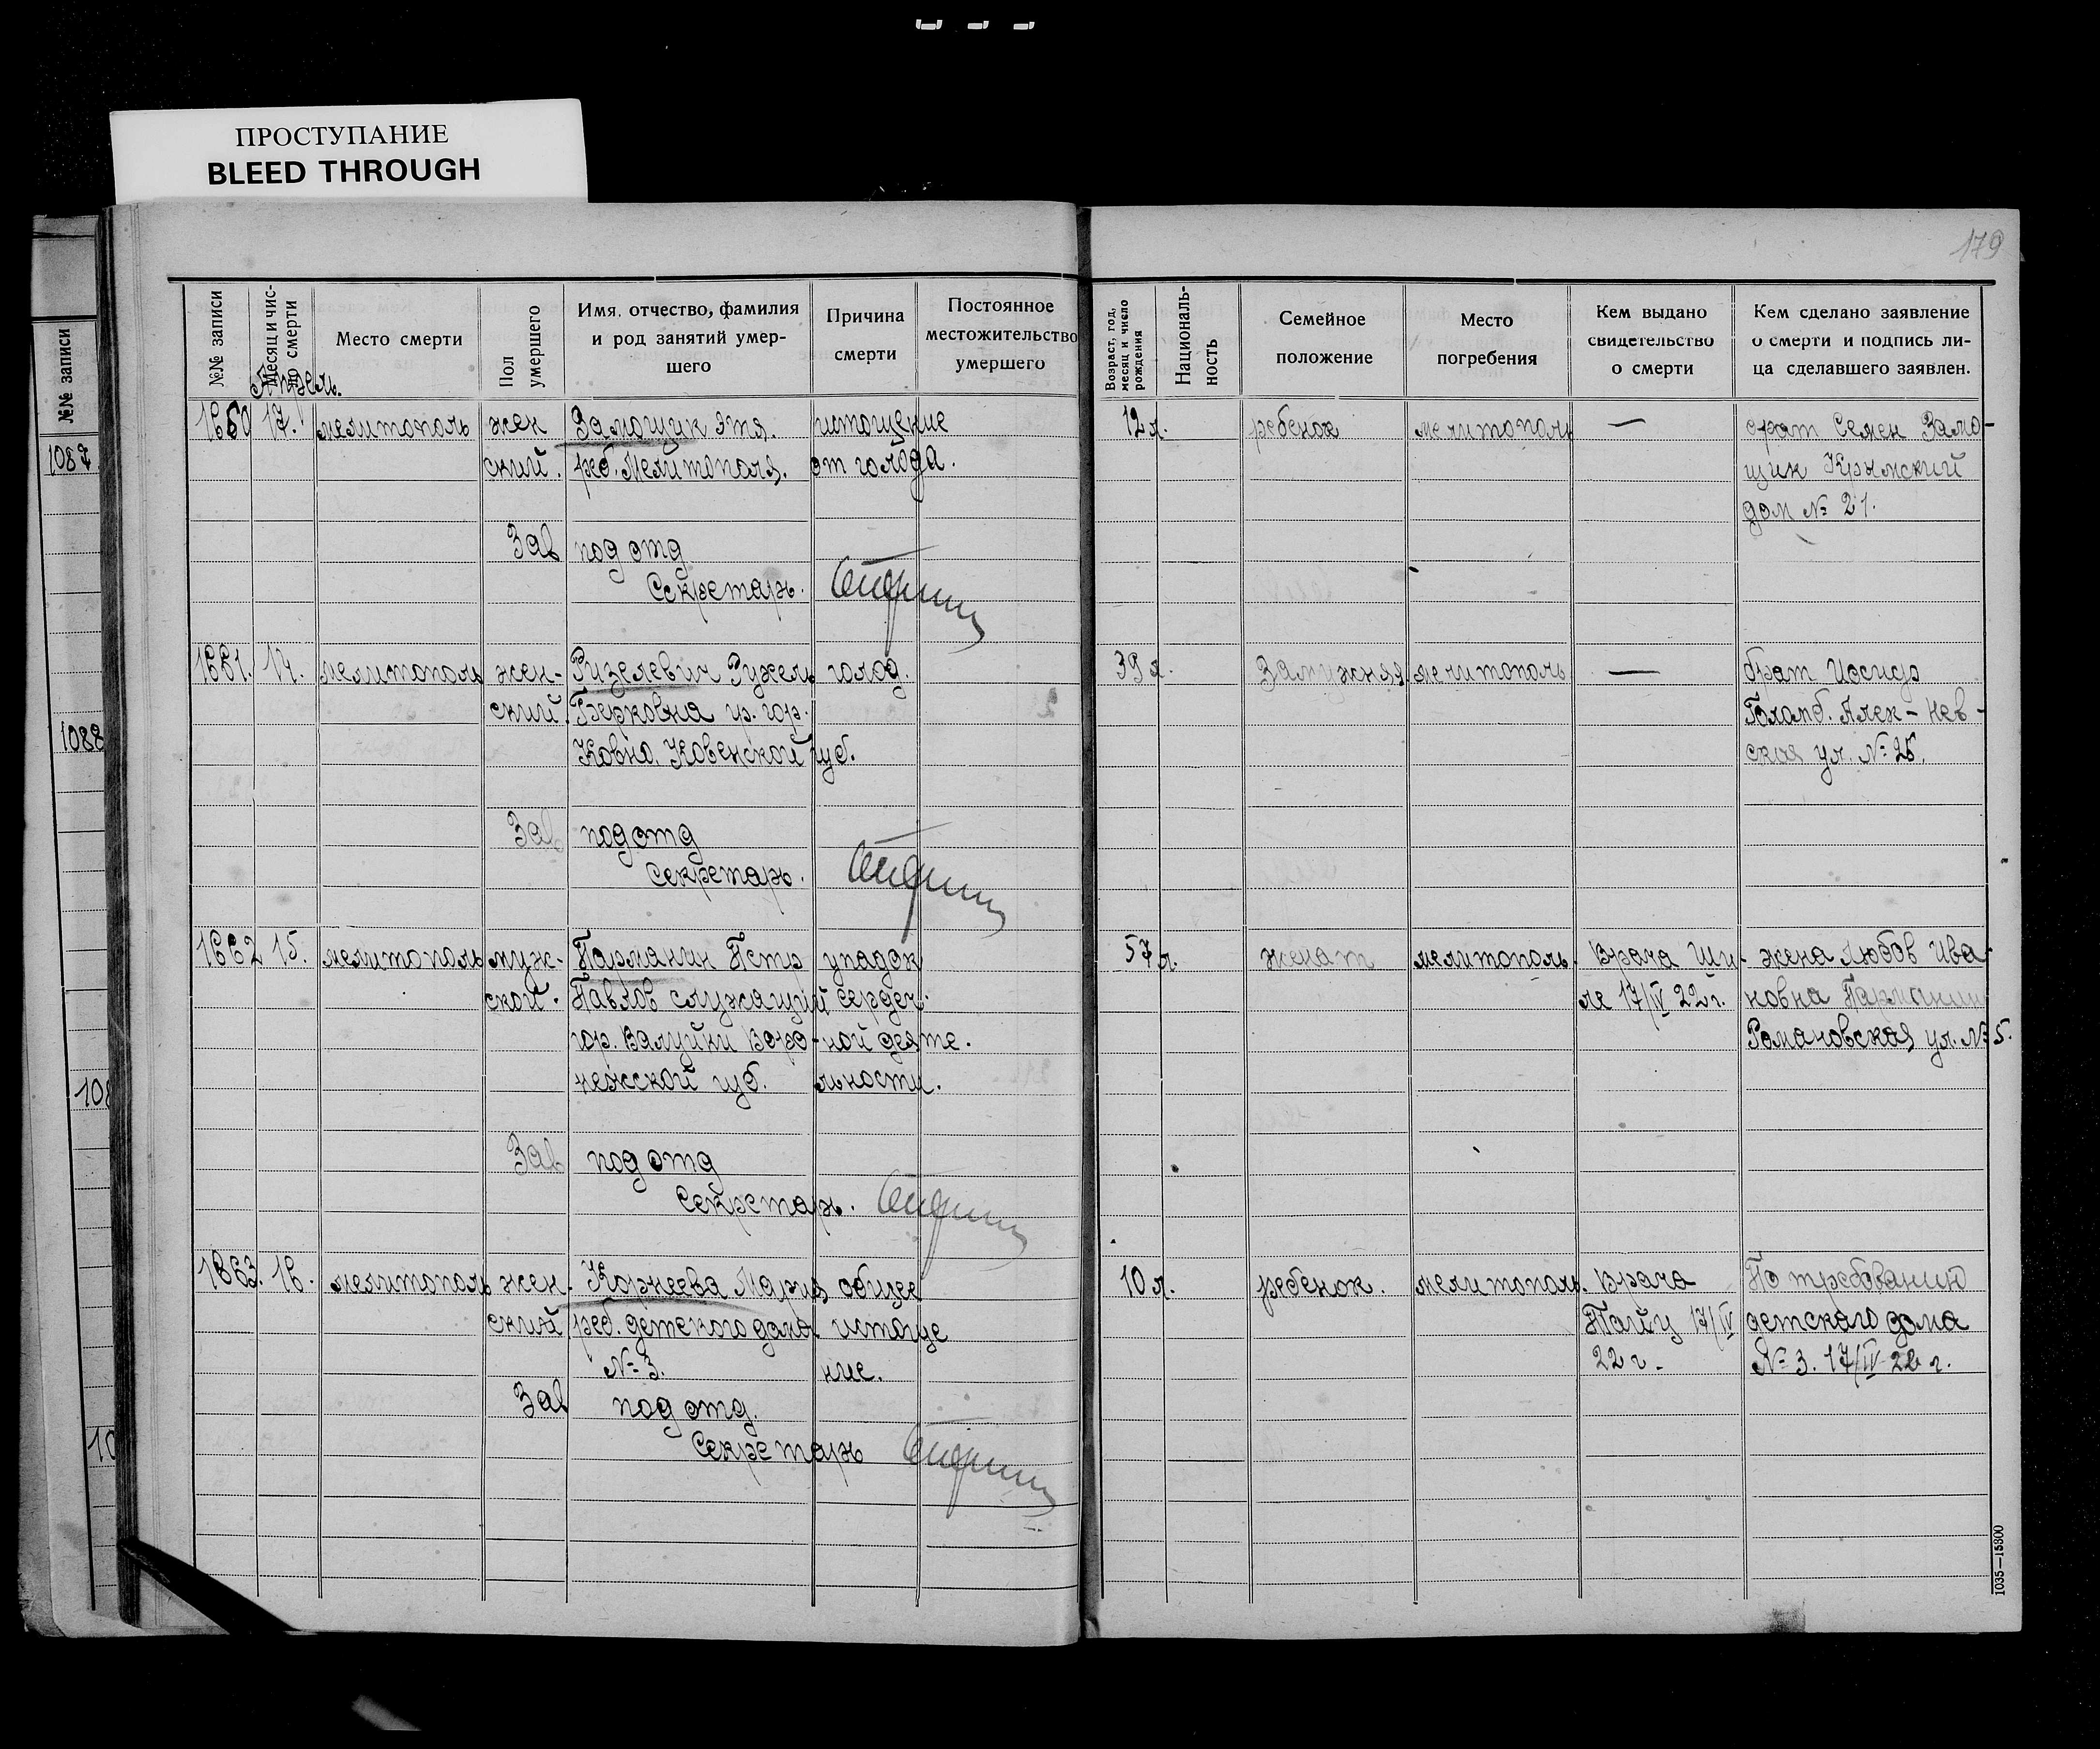 ПРОСТУПАНИЕ
BLEED THROUGH
179
№№ записи
1087
1088
108
10
№№ записи
Месяц и чис-
ло смерти
Место смерти
Пол
умершего
Имя, отчество, фамилия
и род занятий умер-
шего
Причина
смерти
Постоянное
местожительство
умершего
Возраст, год,
месяц и число
рождения
Националь-
ность
Семейное
положение
Место
погребения
Кем выдано
свидетельство
о смерти
Кем сделано заявление
о смерти и подпись ли-
ца сделавшего заявлен.
Апрель.
1660 17. мелитополь жен Замощик Этя. истощение 12 л. ребенок мелитополь — Семен Замо-
ский. реб. Мелитополя. от голода. щик Крымский
дом № 21.
Зав под отд
Секретарь.
1661. 17. мелитополь жен- Ризелевич Ружель голод. 39 л. Замужняя. мелитополь — брат Иосиф
ский. Берковна гр. гор. Голомб. Алек-Нев-
Ковно, Ковенской губ. ская ул. № 25.
Зав под отд
Секретарь.
1662 15. мелитополь муж- Парманин Петр упадок 57 л. женат мелитополь. Врача Ши- жена Любов Ива
ской. Павлов служащий сердеч. ле 17/IV 22 г. новна Парманин
гор. Валуйки Воро-ной деяте. Романовская ул. № 5.
нежской губ. льности.
Зав под отд
Секретарь.
1663. 16. мелитополь жен. Корнеева Мария общее 10 л. ребенок. мелитополь. Врача По требованию
ский реб. детского дома истоще 17/IV детского дома
№ 3. ние. 22 г. № 3. 17/IV 22 г.
Зав под отд.
Секретарь
1035—15800